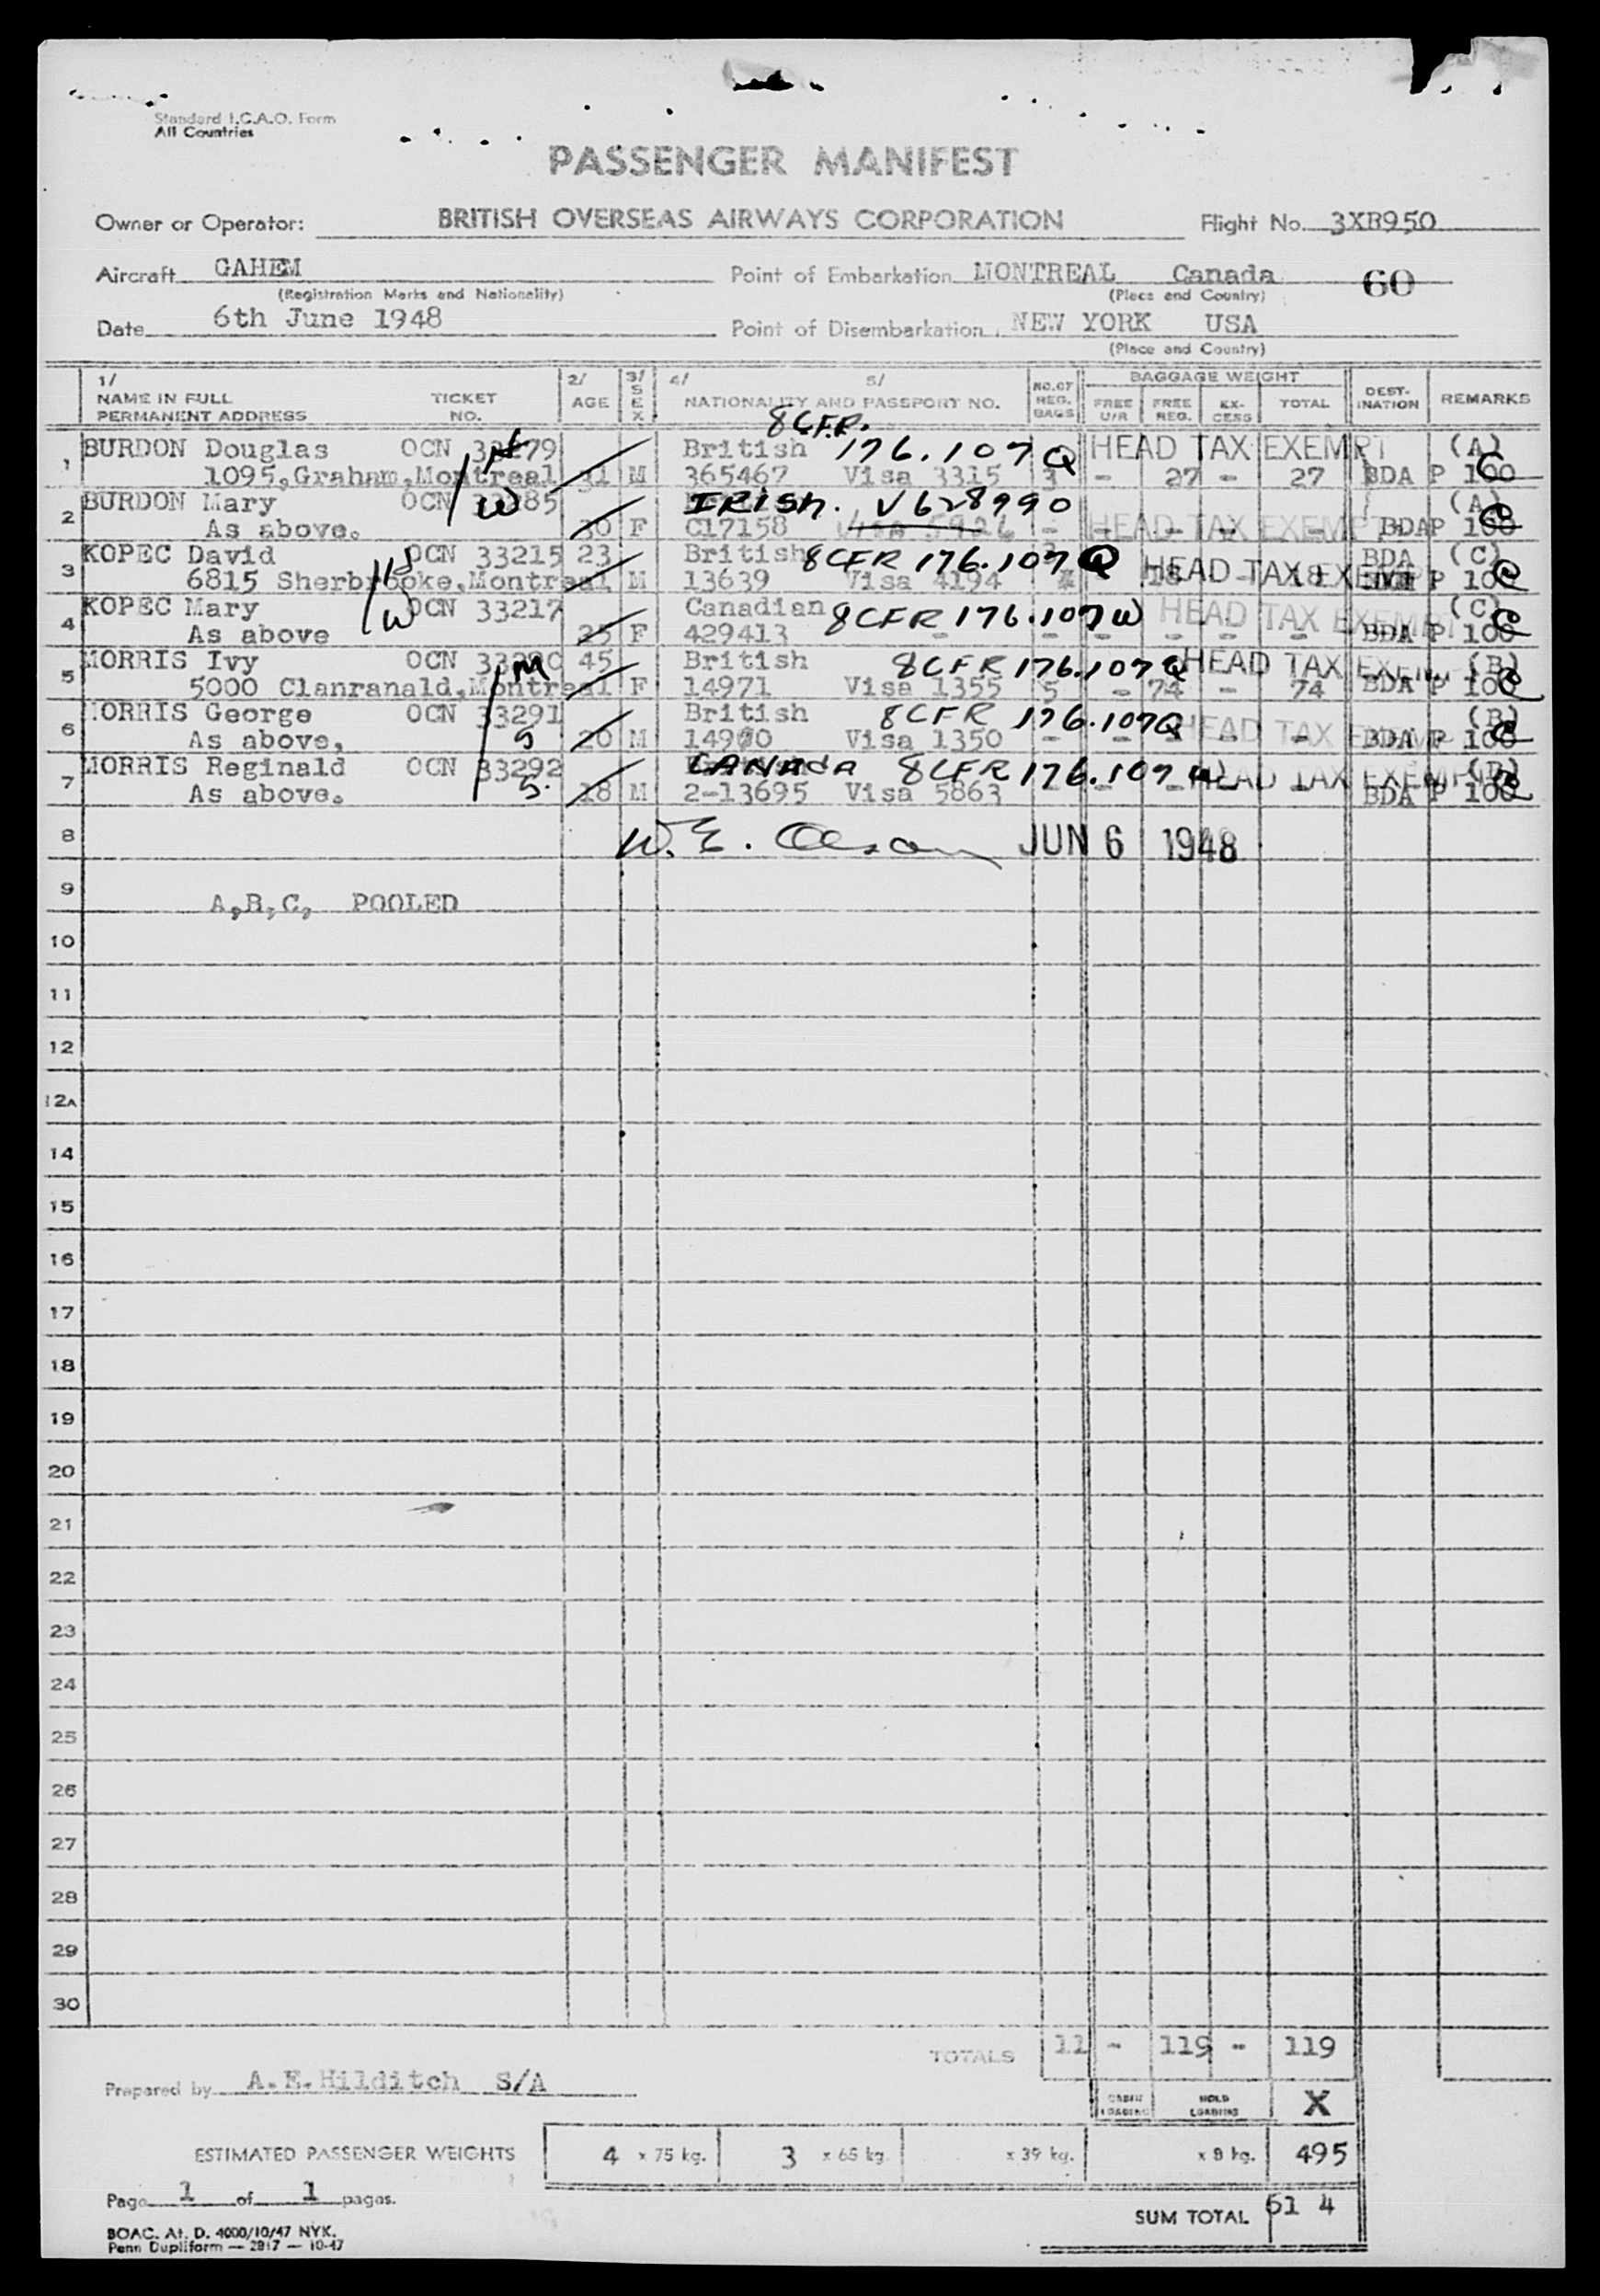 Standard I.C.A.O. Form
All Countries
PASSENGER MANIFEST
Owner or Operator: BRITISH OVERSEAS AIRWAYS CORPORATION Flight No. 3XB950
Aircraft GAHEM Point of Embarkation MONTREAL Canada 60
(Registration Marks and Nationality) (Place and Country)
Date 6th June 1948 Point of Disembarkation NEW YORK USA
(Place and Country)
1/ NAME IN FULL PERMANENT ADDRESS TICKET NO. 2/ AGE 3/ SEX 4/ 5/ NATIONALITY AND PASSPORT NO. NO. OF REG. BAGS BAGGAGE WEIGHT FREE U/R FREE REG. EX-CESS TOTAL DEST-INATION REMARKS
8CFR.
1 BURDON Douglas OCN 33279 British 176.107 Q HEAD TAX EXEMPT (A)
1095,Graham,Montreal 31 M 365467 Visa 3315 3 - 27 - 27 BDA P 100 C
2 BURDON Mary OCN W IRISH. V628990 (A)
As above. 30 F C17158 Visa 5926 - HEAD TAX EXEMPT BDA P 100 C
3 KOPEC David OCN 33215 23 British 8CFR 176.107 Q BDA (C)
6815 Sherbrooke,Montreal M 13639 Visa 4194 18 - 18 HEAD TAX EXEMPT P 100 C
4 KOPEC Mary W OCN 33217 Canadian 8CFR 176.107 W HEAD TAX EXEMPT (C)
As above 25 F 429413 - - - - - - BDA P 100 C
5 MORRIS Ivy OCN M 45 British 8CFR 176.107 Q HEAD TAX EXEMPT (B)
5000 Clanranald,Montreal F 14971 Visa 1355 5 - 74 - 74 BDA P 100 C
6 MORRIS George OCN 33291 British 8CFR 176.107Q HEAD TAX EXEMPT (B)
As above, S 20 M Visa 1350 - - - - - BDA P 100 C
7 MORRIS Reginald OCN 33292 CANADA 8CFR 176.107 W HEAD TAX EXEMPT (B)
As above. S. 18 M 2-13695 Visa 5863 - - - - - BDA P 100 C
8 W. E. Olson JUN 6 1948
9 A,B,C, POOLED
10
11
12
12A
14
15
16
17
18
19
20
21
22
23
24
25
26
27
28
29
30
TOTALS 11 - 119 - 119
Prepared by A.E.Hilditch S/A
CABIN LOADING HOLD LOADING X
ESTIMATED PASSENGER WEIGHTS 4 x 75 kg. 3 x 65 kg. x 39 kg. x 8 kg. 495
Page 1 of 1 pages.
SUM TOTAL 61 4
BOAC. At. D. 4000/10/47 NYK.
Penn Dupliform — 2817 — 10-47